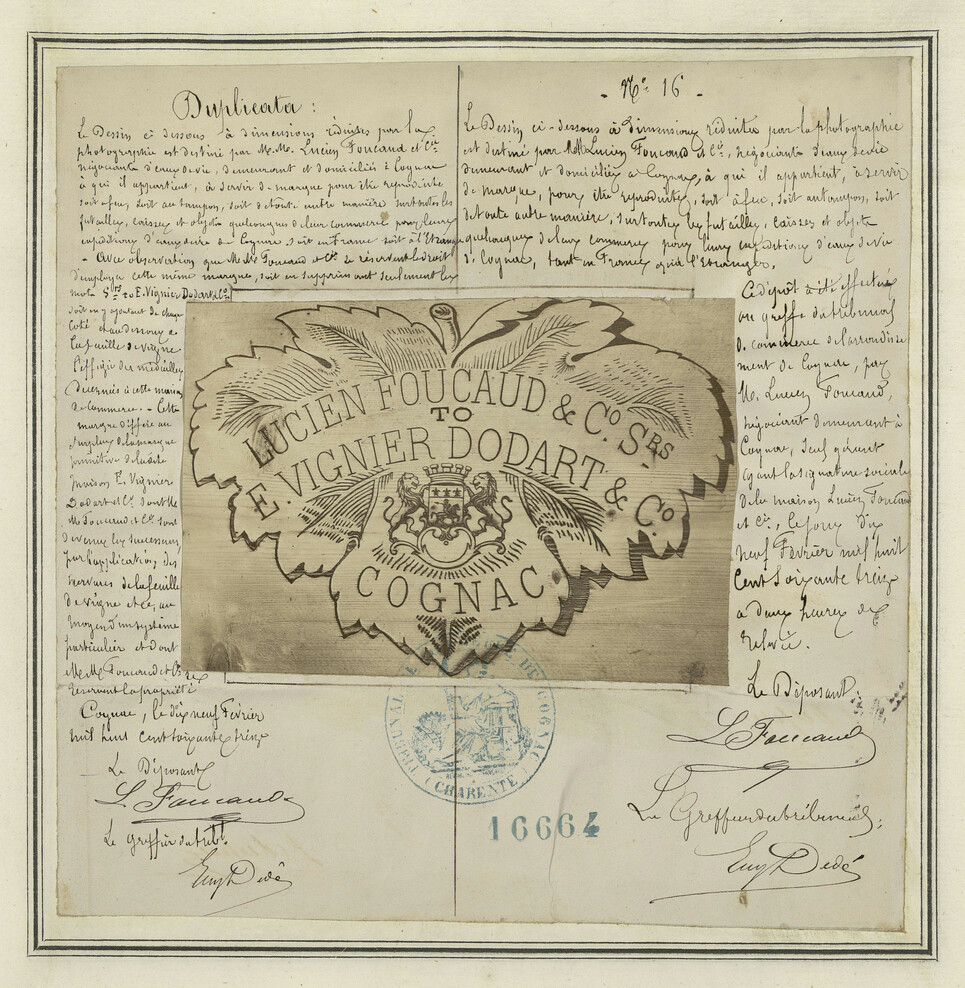 Duplicata :
Le Dessin ci dessous à dimensions réduites par la
photographie est destiné par M.M. Lucien Foucaud et Cie
négociants d'eau de vie, demeurant et domiciliés à Cognac
à qui il appartient, à servir de marque pour être reproduite
soit à feu, soit au tampon, soit de toute autre manière sur toutes les
futailles, caisses et objets quelconques de leur commerce pour leurs
expéditions d'eau de vie de Cognac soit en France soit à l'Etranger
- Avec observation que M.M. Foucaud et Cie se réservent le droit
d'employer cette même marque, soit en supprimant seulement les
mots Srs to E. Vignier Dodart & Co.
soit en y ajoutant de chaque
coté et au dessous de
la feuille de vigne
l'effigie des médailles
décernées à cette maison
de Commerce. - Cette
marque diffère au
surplus de la marque
primitive de la dite
maison E. Vignier
Dodart et Cie dont M.
M. Foucaud et Cie sont
devenus les successeurs
par l'application des
nervures de la feuille
de vigne et ce, au
moyen d'un système
particulier et dont
M.M. Foucaud et Cie se
réservent la propriété
Cognac, le dix neuf Février
mil huit cent soixante treize
Le Déposant
L. Foucaud
Le Greffier du trib.
Dedé
- No. 16 -
Le Dessin ci-dessous à dimensions réduites par la photographie
est destiné par M.M. Lucien Foucaud et Cie, négociants d'eau de vie
demeurant et domiciliés à Cognac, à qui il appartient, à servir
de marque, pour être reproduite, soit à feu, soit au tampon, soit
de toute autre manière, sur toutes les futailles, caisses et objets
quelconques de leur commerce pour leurs expéditions d'eau de vie
de Cognac, tant en France qu'à l'Etranger.
Ce dépôt a été effectué
au greffe du tribunal
de commerce de l'arrondisse
ment de Cognac, par
M. Lucien Foucaud,
négociant demeurant à
Cognac, seul gérant
ayant la signature sociale
de la maison Lucien Foucaud
et Cie, le jour dix
neuf Février mil huit
Cent Soixante treize
a deux heures de
relevée.
Le Déposant :
L Foucaud
Le Greffier du tribunal :
Dedé
LUCIEN FOUCAUD & Co. SRS
TO
E. VIGNIER DODART & Co.
COGNAC
TRIBUNAL DE COGNAC
(CHARENTE)
16664